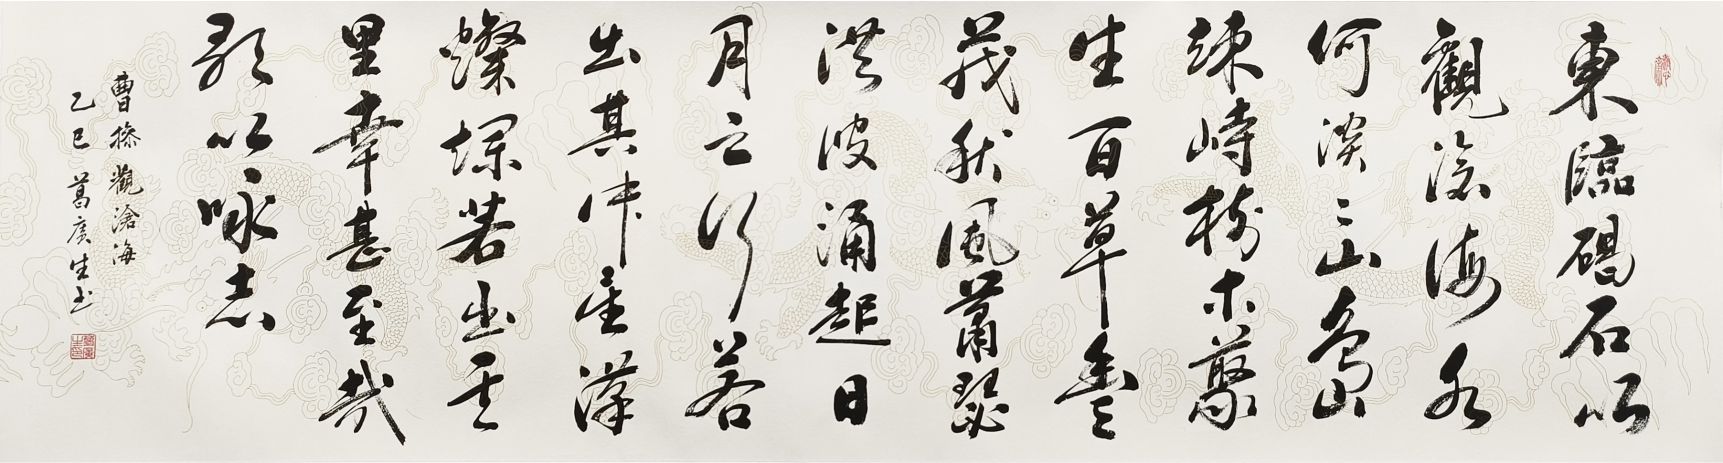 東臨碣石以
觀滄海水
何淡〻山島
竦峙樹木藂
生百草豐
茂秋風蕭瑟
洪波涌起日
月之行若
出其中星漢
燦爛若出其
里幸甚至哉
歌以咏志
曹操觀滄海
乙巳葛廣生书